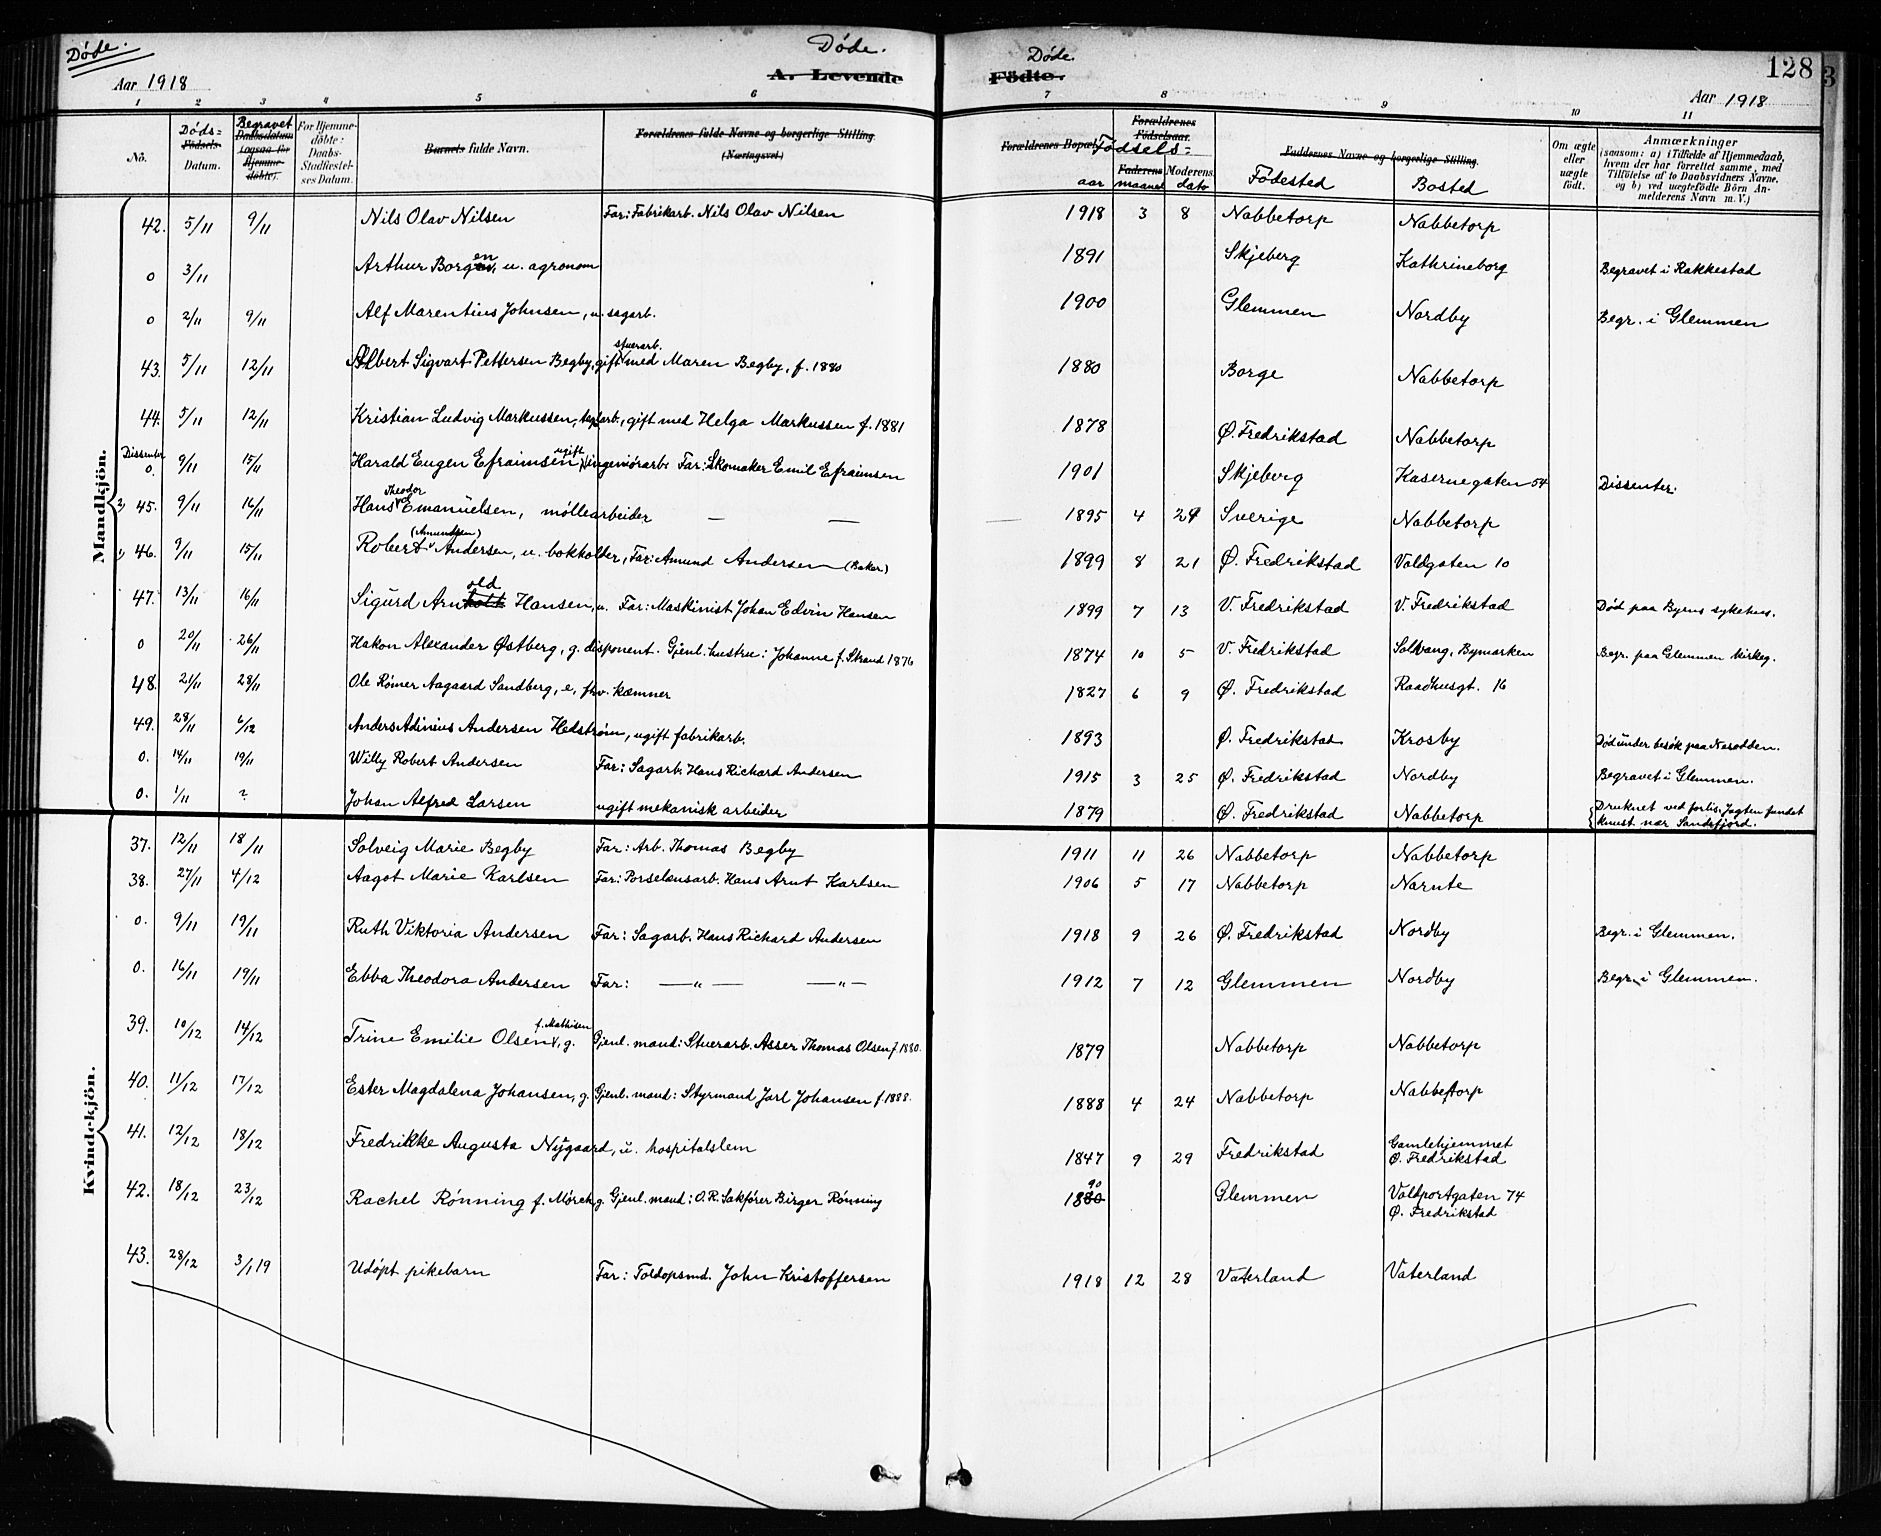 Døde.
Aar 1918
Døde.
A. Levende
Døde.
Födte.
128
3
Aar 1918
1 2 3 4 5 6 7 8 9 10 11
No.
Døds=
Födsels-
Datum.
Begravet
Daabsdatum
(ogsaa for
Hjemme-
döbte).
For Hjemme-
döbte:
Daabs-
Stadfæstel-
ses Datum.
Barnets fulde Navn.
Forældrenes fulde Navne og borgerlige Stilling.
(Næringsvei)
Forældrenes Bopæl.
Fødsels=
aar
Forældrenes
Födselsaar.
Faderens
maaned
Moderens
dato
Faddernes Navne og borgerlige Stilling.
Fødested
Bosted
Om ægte
eller
uægte
födt.
Anmærkninger
(saasom: a) i Tilfælde af Hjemmedaab,
hvem der har forrettet samme, med
Tilföielse af to Daabsvidners Navne.
og b) ved uægtefödte Börn An-
melderens Navn m. V.)
Mandkjön.
42. 5/11 9/11 Nils Olav Nilsen Far: Fabrikarb. Nils Olav Nilsen 1918 3 8 Nabbetorp Nabbetorp
0 3/11 Arthur Borgen, u. agronom 1891 Skjeberg Kathrineborg Begravet i Rakkestad
0 2/11 9/11 Alf Marentius Johnsen, u. sagarb. 1900 Glemmen Nordby Begr. i Glemmen
43. 5/11 12/11 Albert Sigvart Pettersen Begby, stuerarb. gift med Maren Begby, f. 1880 1880 Borge Nabbetorp
44. 5/11 12/11 Kristian Ludvig Markussen, teglarb., gift med Helga Markussen f. 1881 1878 Ø. Fredrikstad Nabbetorp
Dissenter
0. 9/11 15/11 Harald Eugen Efraimsen, ugift ingeniörarb. Far: Skomaker Emil Efraimsen 1901 Skjeberg Kasernegaten 54 Dissenter.
2) 45. 9/11 16/11 Hans Theodor Emanuelsen, møllearbeider — — — 1895 4 29 Sverige Nabbetorp
1) 46. 9/11 15/11 Robert (Amundsen) Andersen, u. bokholder, Far: Amund Andersen (Baker) 1899 8 21 Ø. Fredrikstad Voldgaten 10
47. 13/11 16/11 Sigurd Arnold Hansen, u. Far: Maskinist Johan Edvin Hansen 1899 7 13 V. Fredrikstad V. Fredrikstad Død paa Byens sykehus.
0 20/11 26/11 Hakon Alexander Østberg, g. disponent. Gjenl. hustru: Johanne f. Strand 1876 1874 10 5 V. Fredrikstad Solvang, Bymarken Begr. paa Glemmen kirkeg.
48. 21/11 28/11 Ole Rømer Aagaard Sandberg, e, fhv. kæmner 1827 6 9 Ø. Fredrikstad Raadhusgt. 16
49. 28/11 6/12 Anders Adinius Andersen Hedstrøm, ugift fabrikarb. 1893 Ø. Fredrikstad Krosby Død under besøk paa Nesodden.
0. 14/11 19/11 Willy Robert Andersen Far: Sagarb. Hans Richard Andersen 1915 3 25 Ø. Fredrikstad Nordby Begravet i Glemmen.
0. 1/11 ? Johan Alfred Larsen ugift mekanisk arbeider 1879 Ø. Fredrikstad Nabbetorp Druknet ved forlis. Jagten fundet
knust nær Sandefjord.
Kvindekjön.
37. 12/11 18/11 Solveig Marie Begby Far: Arb. Thomas Begby 1911 11 26 Nabbetorp Nabbetorp
38. 27/11 4/12 Aagot Marie Karlsen Far: Porselensarb. Hans Arnt Karlsen 1906 5 17 Nabbetorp Narnte
0. 9/11 19/11 Ruth Viktoria Andersen Far: Sagarb. Hans Richard Andersen 1918 9 26 Ø. Fredrikstad Nordby Begr. i Glemmen.
0. 16/11 19/11 Ebba Theodora Andersen Far: —"— —"— 1912 7 12 Glemmen Nordby Begr. i Glemmen.
39. 10/12 14/12 Trine Emilie Olsen f. Mathisen, g. Gjenl. mand: Stuerarb. Asser Thomas Olsen f. 1880. 1879 Nabbetorp Nabbetorp
40. 11/12 17/12 Ester Magdalena Johansen, g. Gjenl. mand: Styrmand Jarl Johansen f. 1888. 1888 4 24 Nabbetorp Nabbetorp
41. 12/12 18/12 Fredrikke Augusta Nygaard, u. hospitalslem 1847 9 29 Fredrikstad Gamlehjemmet
Ø. Fredrikstad
42. 18/12 23/12 Rachel Rønning f. Mørch g. Gjenl. mand: O.R. Sakfører Birger Rønning 1880 90 Glemmen Voldportgaten 74
Ø. Fredrikstad
43. 28/12 3/1 19 Udøpt pikebarn Far: Toldopsmd. John Kristoffersen 1918 12 28 Vaterland Vaterland